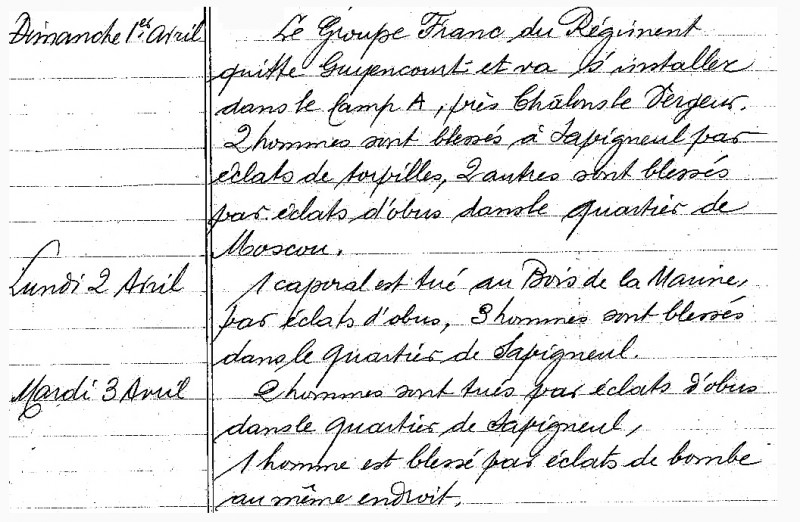 Dimanche 1er Avril Le Groupe Franc du Régiment
quitte Guyencourt et va s'installer
dans le Camp A, près Châlons le Vergeur.
2 hommes sont blessés à Sapigneul par
éclats de torpilles, 2 autres sont blessés
par éclats d'obus dans le quartier de
Moscou.
Lundi 2 Avril 1 caporal est tué au Bois de la Marine,
par éclats d'obus, 3 hommes sont blessés
dans le quartier de Sapigneul.
Mardi 3 Avril 2 hommes sont tués par éclats d'obus
dans le quartier de Sapigneul,
1 homme est blessé par éclats de bombe
au même endroit.